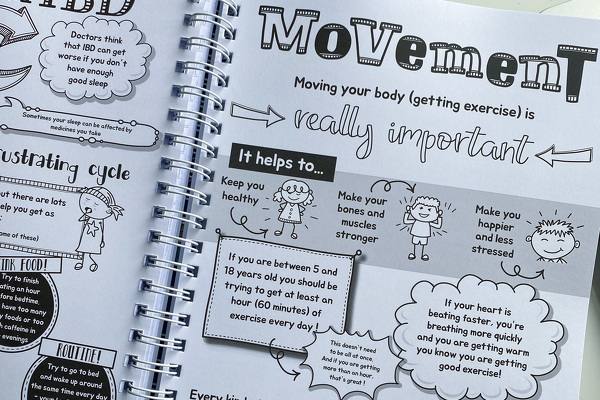 IBD
Doctors think
that IBD can get
worse if you don't
have enough
good sleep
Sometimes your sleep can be affected by
medicines you take
cycle
out there are lots
help you get as
me of these)
FOOD!
Try to finish
an hour
bedtime.
have too many
foods or too
caffeine in
evenings
ROUTINE!
Try to go to bed
and wake up around
the same time every day
MOVEMENT
Moving your body (getting exercise) is
really important
It helps to...
Keep you
healthy
Make your
bones and
muscles
stronger
Make you
happier
and less
stressed
If you are between 5 and
18 years old you should be
trying to get at least an
hour (60 minutes) of
exercise every day!
This doesn't need
to be all at once.
And if you are getting
more than an hour,
that's great!
If your heart is
beating faster, you're
breathing more quickly
and you are getting warm
you know you are getting
good exercise!
Every